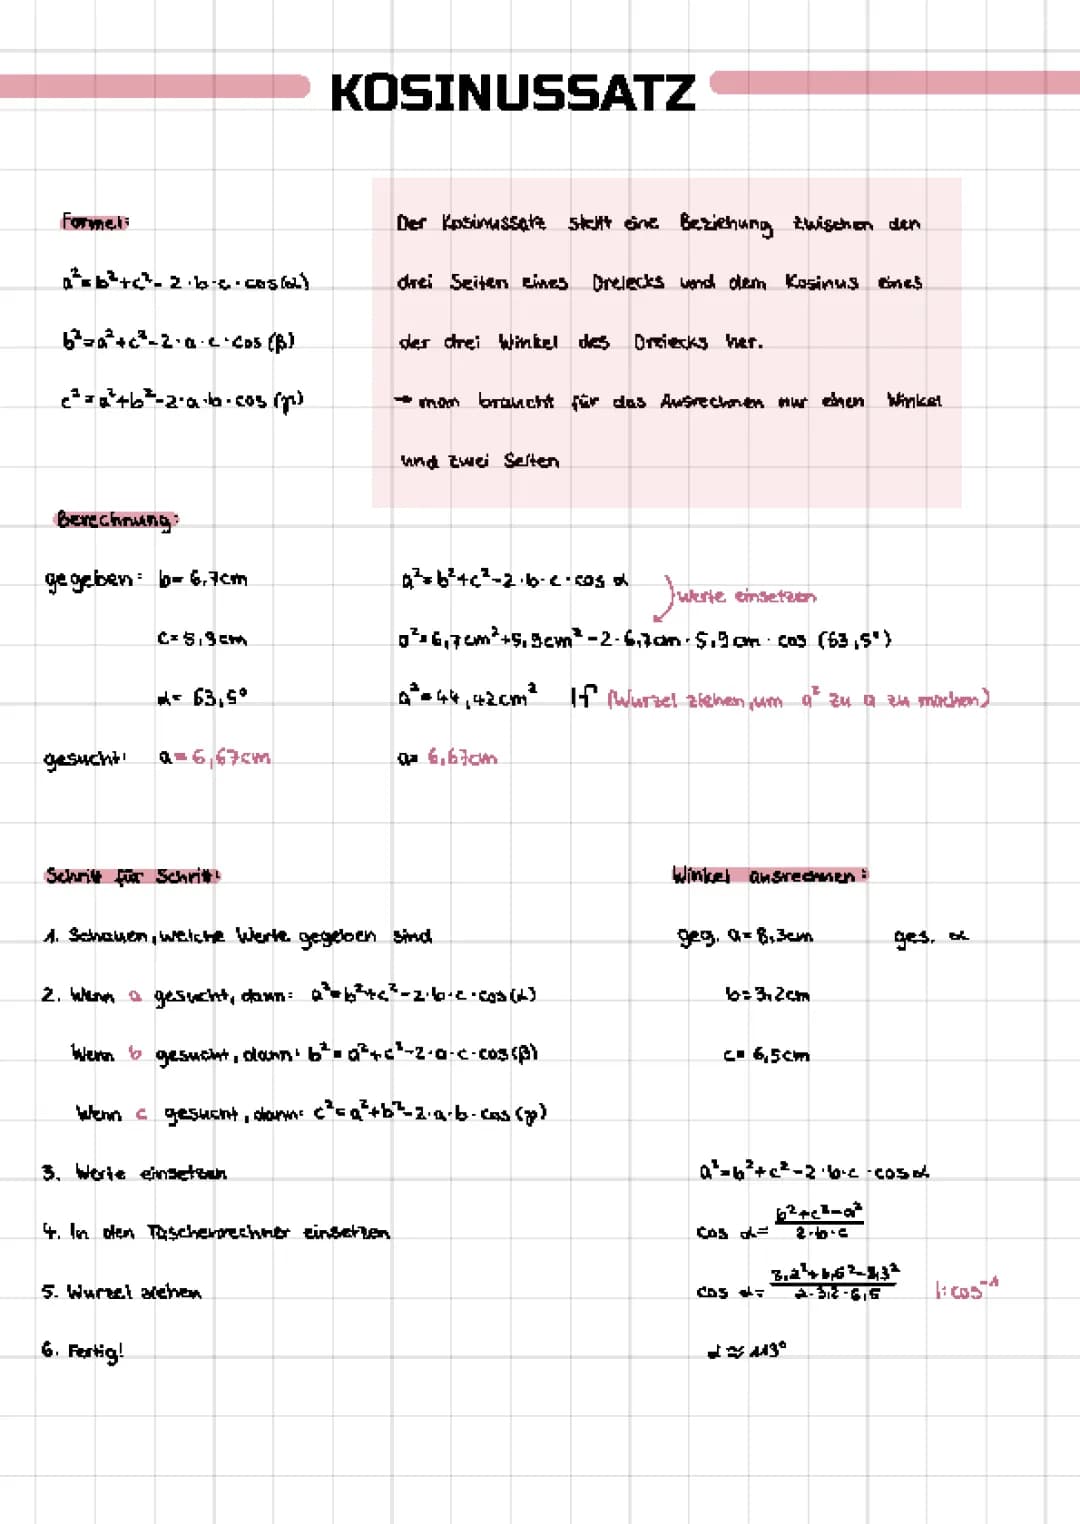 KOSINUSSATZ
Formel:
a² = b² + c² - 2 · b · c · cos(α)
b² = a² + c² - 2 · a · c · cos (β)
c² = a² + b² - 2 · a · b · cos (γ)
Der Kosinussatz stellt eine Beziehung zwischen den
drei Seiten eines Dreiecks und dem Kosinus eines
der drei Winkel des Dreiecks her.
→ man braucht für das Ausrechnen nur einen Winkel
und zwei Seiten
Berechnung:
gegeben: b = 6,7cm
c = 5,9cm
α = 63,5°
gesucht: a = 6,67cm
a² = b² + c² - 2 · b · c · cos α
Werte einsetzen
a² = 6,7cm² + 5,9cm² - 2 · 6,7cm · 5,9cm · cos (63,5°)
a² = 44,42cm² |√ (Wurzel ziehen, um a² zu a zu machen)
a = 6,67cm
Schritt für Schritt:
1. Schauen, welche Werte gegeben sind
2. Wenn a gesucht, dann: a² = b² + c² - 2 · b · c · cos(α)
Wenn b gesucht, dann: b² = a² + c² - 2 · a · c · cos(β)
Wenn c gesucht, dann: c² = a² + b² - 2 · a · b · cos (γ)
3. Werte einsetzen
4. In den Taschenrechner einsetzen
5. Wurzel ziehen
6. Fertig!
Winkel ausrechnen:
geg. a = 8,3cm ges. α
b = 3,2cm
c = 6,5cm
a² = b² + c² - 2 · b · c · cos α
cos α = (b² + c² - a²) / (2 · b · c)
cos α = (3,2² + 6,5² - 8,3²) / (2 · 3,2 · 6,5) |: cos⁻¹
α ≈ 113°